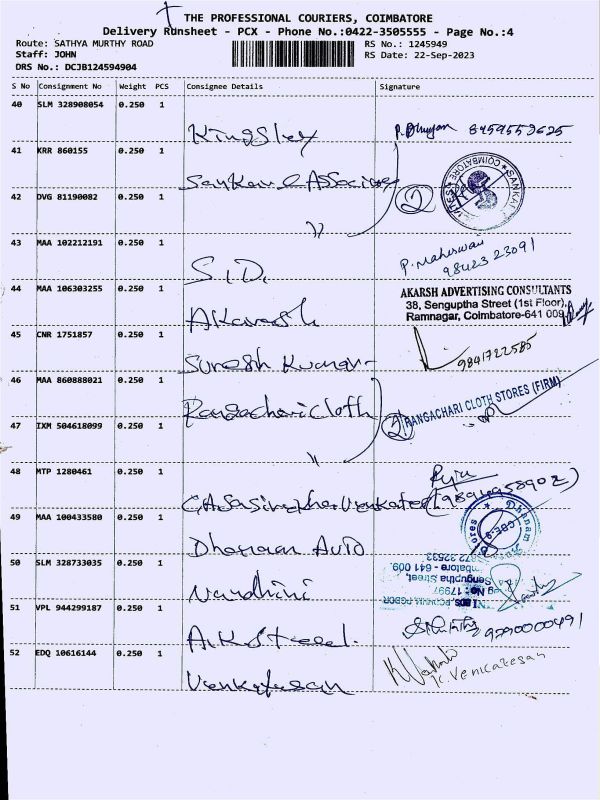 THE PROFESSIONAL COURIERS, COIMBATORE
Delivery Runsheet - PCX - Phone No.:0422-3505555 - Page No.:4
Route: SATHYA MURTHY ROAD RS No.: 1245949
Staff: JOHN RS Date: 22-Sep-2023
DRS No.: DCJB124594904
S No Consignment No Weight PCS Consignee Details Signature
40 SLM 328908054 0.250 1 Kingsley
41 KRR 860155 0.250 1 Sankar & Associates
COIMBATORE SANKAR
42 DVG 81190082 0.250 1 〃 2
43 MAA 102212191 0.250 1 S.I.D. P. Maheswari
98423 23091
44 MAA 106303255 0.250 1 Akarash
AKARSH ADVERTISING CONSULTANTS
38, Senguptha Street (1st Floor),
Ramnagar, Coimbatore-641 009.
45 CNR 1751857 0.250 1 Suresh Kumar 9841722585
46 MAA 860888021 0.250 1 Rangachari Cloth
RANGACHARI CLOTH STORES (FIRM)
47 IXM 504618099 0.250 1 〃 2
48 MTP 1280461 0.250 1
49 MAA 100433580 0.250 1 Dhanam Auto
Dhanam Stores CBE-9
50 SLM 328733035 0.250 1 Vardhini
Senguptha Street,
641 009
51 VPL 944299187 0.250 1 A.K. Steel. 9790000491
52 EDQ 10616144 0.250 1 Venkatesan
K. Venkatesan